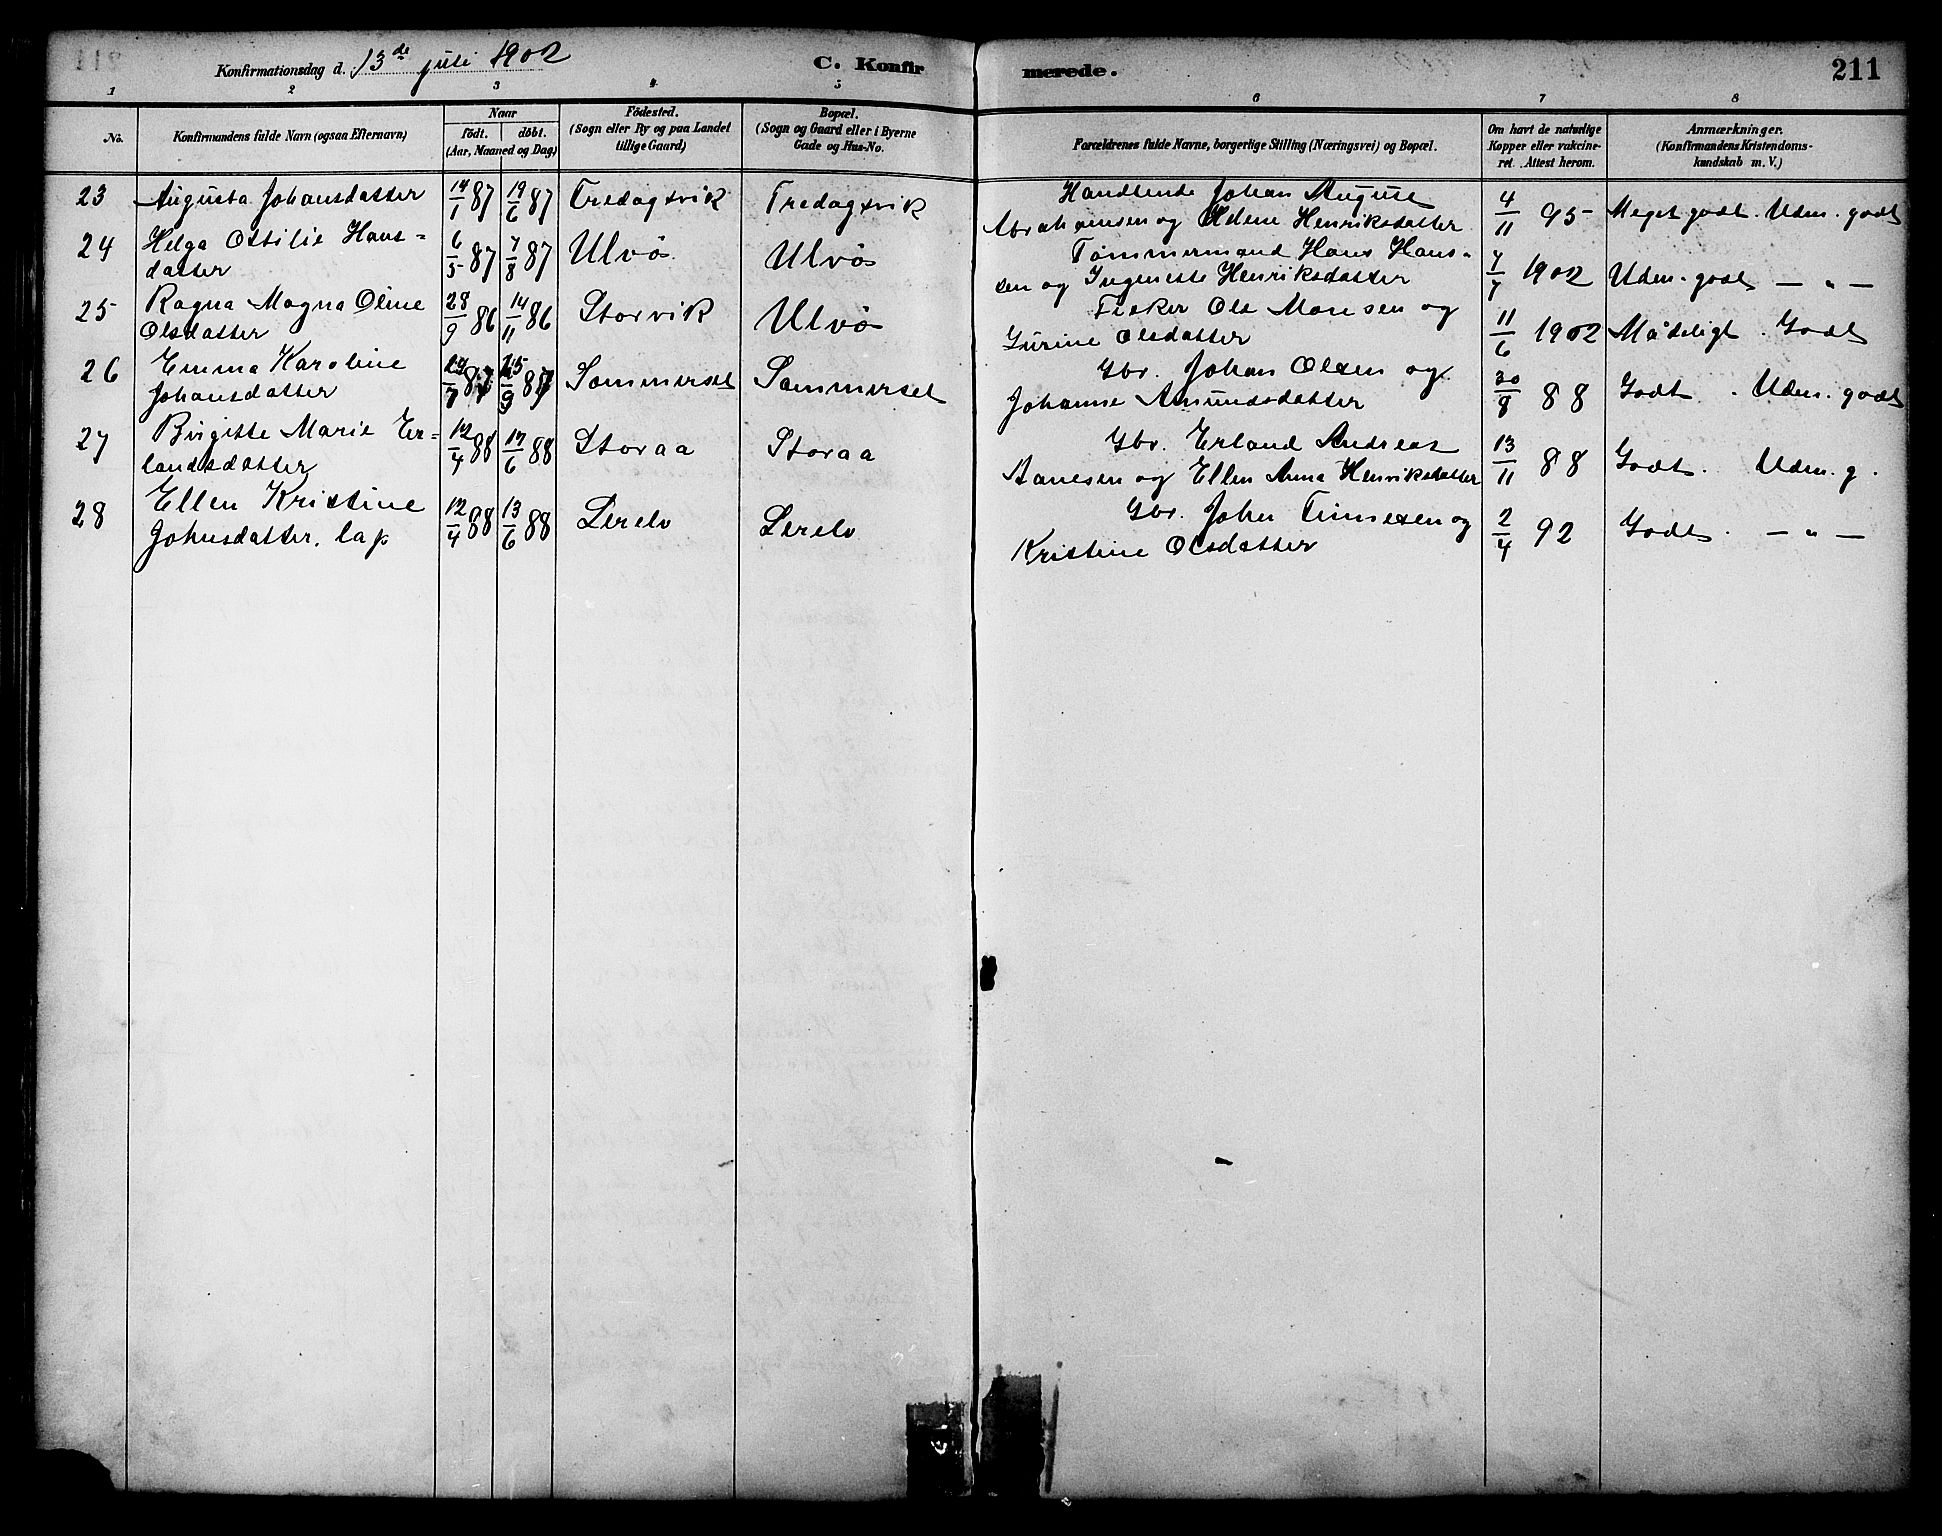 Konfirmationsdag d. 13de juli 1902 C. Konfirmerede. 211
1 2 3 4 5 6 7 8
No. Konfirmandens fulde Navn (ogsaa Efternavn) Naar født. døbt. (Aar, Maaned og Dag) Fødested. (Sogn eller By og paa Landet tillige Gaard) Bopæl. (Sogn og Gaard eller i Byerne Gade og Hus-No. Forældrenes fulde Navne, borgerlige Stilling (Næringsvei) og Bopæl. Om havt de naturlige Kopper eller vakcineret. Attest herom. Anmærkninger. (Konfirmandens Kristendomskundskab m. V.)
23 Augusta Johansdatter 14/1 87 19/6 87 Fredagsvik Fredagsvik Handlende Johan August
Abrahamsen og Henriksdatter 4/11 95 Meget godt. Udm. godt
24 Helga Ottilie Hans- 6/5 87 7/8 87 Ulvø Ulvø Tømmermand Hans Han-
datter sen og Henriksdatter 7/7 1902 Udm. godt — " —
25 Ragna Magna Oline 28/9 86 14/11 86 Storvik Ulvø Fisker Ole Monsen og
Olsdatter Gurine Olsdatter 11/6 1902 Mådeligt. Godt
26 Emma Karoline 87 87 Sommerset Sommerset Gbr. Johan Olsen og
Johansdatter Johanne Amundsdatter 30/8 88 Godt. Udm. godt
27 Birgitte Marie Er- 12/4 88 17/6 88 Storaa Storaa Gbr. Erland Andreas
landsdatter Aanesen og Ellen Anna Henriksdatter 13/11 88 Godt. Udm. g.
28 Ellen Kristine 12/4 88 13/6 88 Lerelv Lerelv Gbr. Johan og
Johnsdatter. lap Kristine Olsdatter 2/4 92 Godt. — " —